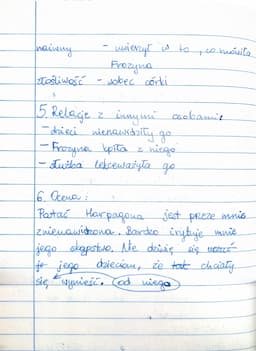 naiwny - uwierzył w to, co mówiła
Frozyna
złośliwość - wobec córki
5. Relacje z innymi osobami:
- dzieci nienawidziły go
- Frozyna kpiła z niego
- służba lekceważyła go
6. Ocena:
Postać Harpagona jest przez mnie
znienawidzona. Bardzo irytuje mnie
jego skąpstwo. Nie dziwię się
jego dzieciom, że tak chciały
się wynieść. od niego